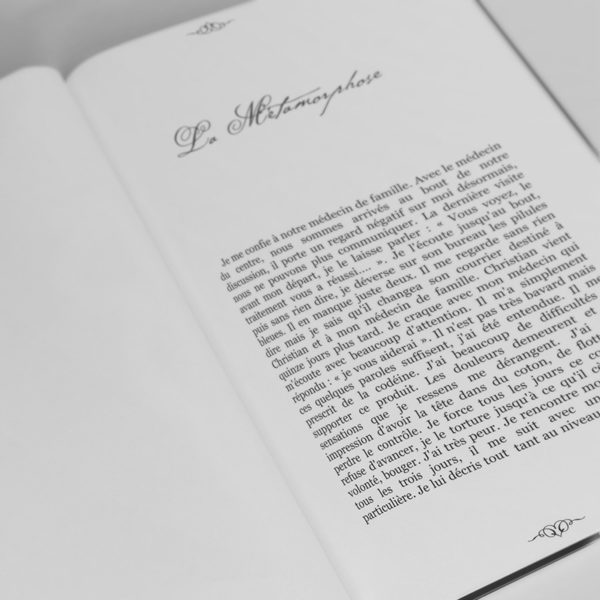 La Métamorphose
Je me confie à notre médecin de famille. Avec le médecin
du centre, nous sommes arrivés au bout de notre
discussion, il porte un regard négatif sur moi désormais,
nous ne pouvons plus communiquer. La dernière visite
avant mon départ, je le laisse parler : « Vous voyez, le
traitement vous a réussi.... ». Je l'écoute jusqu'au bout,
puis sans rien dire, je déverse sur son bureau les pilules
bleues. Il en manque juste deux. Il me regarde sans rien
dire mais je sais qu'il changea son courrier destiné à
Christian et à mon médecin de famille. Christian vient
quinze jours plus tard. Je craque avec mon médecin qui
m'écoute avec beaucoup d'attention. Il m'a simplement
répondu : « je vous aiderai ». Il n'est pas très bavard mais
ces quelques paroles suffisent, j'ai été entendue. Il me
prescrit de la codéine. J'ai beaucoup de difficultés
supporter ce produit. Les douleurs demeurent et
sensations que je ressens me dérangent. J'ai
impression d'avoir la tête dans du coton, de flott
perdre le contrôle. Je force tous les jours ce co
refuse d'avancer, je le torture jusqu'à ce qu'il c
volonté, bouger. J'ai très peur. Je rencontre mo
tous les trois jours, il me suit avec un
particulière. Je lui décris tout tant au niveau